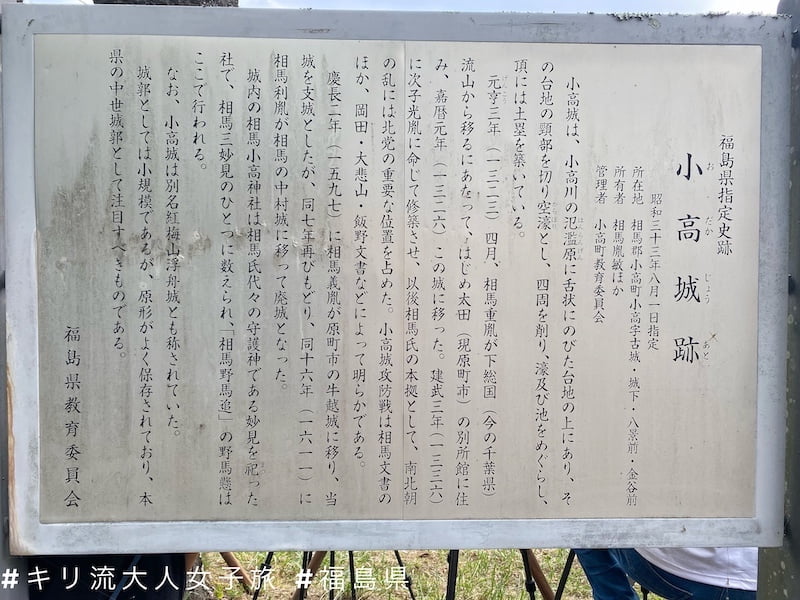 福島県指定史跡
小高城跡
お だか じょう あと
昭和三十三年八月一日指定
所在地 相馬郡小高町小高字古城・城下・八景前・金谷前
所有者 相馬胤敏ほか
管理者 小高町教育委員会
小高城は、小高川の氾濫原に舌状にのびた台地の上にあり、そ
の台地の頸部を切り空濠とし、四周を削り、濠及び池をめぐらし、
頂には土塁を築いている。
元亨三年（一三二三）四月、相馬重胤が下総国（今の千葉県）
流山から移るにあたって、はじめ太田（現原町市）の別所館に住
み、嘉暦元年（一三二六）この城に移った。建武三年（一三三六）
に次子光胤に命じて修築させ、以後相馬氏の本拠として、南北朝
の乱には北党の重要な位置を占めた。小高城攻防戦は相馬文書の
ほか、岡田・大悲山・飯野文書などによって明らかである。
慶長二年（一五九七）に相馬義胤が原町市の牛越城に移り、当
城を支城としたが、同七年再びもどり、同十六年（一六一一）に
相馬利胤が相馬の中村城に移って廃城となった。
城内の相馬小高神社は相馬氏代々の守護神である妙見を祀った
社で、相馬三妙見のひとつに数えられ、「相馬野馬追」の野馬懸は
ここで行われる。
なお、小高城は別名紅梅山浮舟城とも称されていた。
城郭としては小規模であるが、原形がよく保存されており、本
県の中世城郭として注目すべきものである。
福島県教育委員会
#キリ流大人女子旅 #福島県